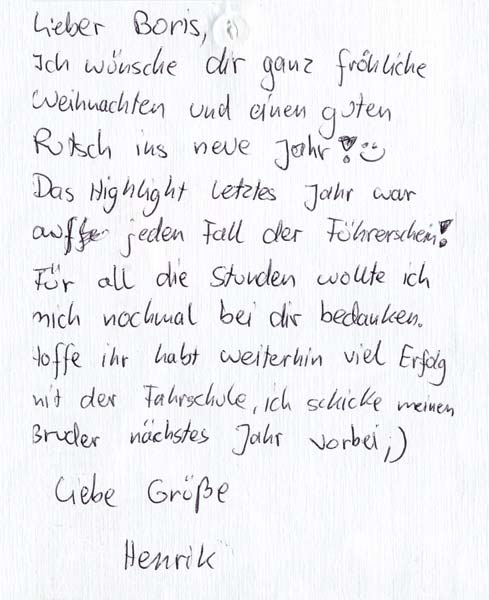 Lieber Boris,
Ich wünsche dir ganz fröhliche
Weihnachten und einen guten
Rutsch ins neue Jahr!☺
Das Highlight letztes Jahr war
auf jeden Fall der Führerschein!
Für all die Stunden wollte ich
mich nochmal bei dir bedanken.
Hoffe ihr habt weiterhin viel Erfolg
mit der Fahrschule, ich schicke meinen
Bruder nächstes Jahr vorbei ;)
Liebe Grüße
Henrik